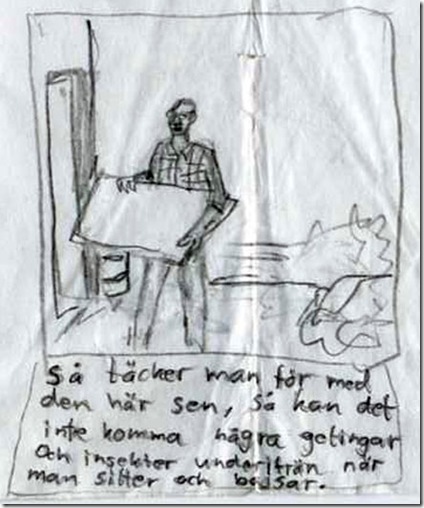 Så täcker man för med
den här sen, Så kan det
inte komma några getingar
Och insekter underifrån när
man sitter och bajsar.